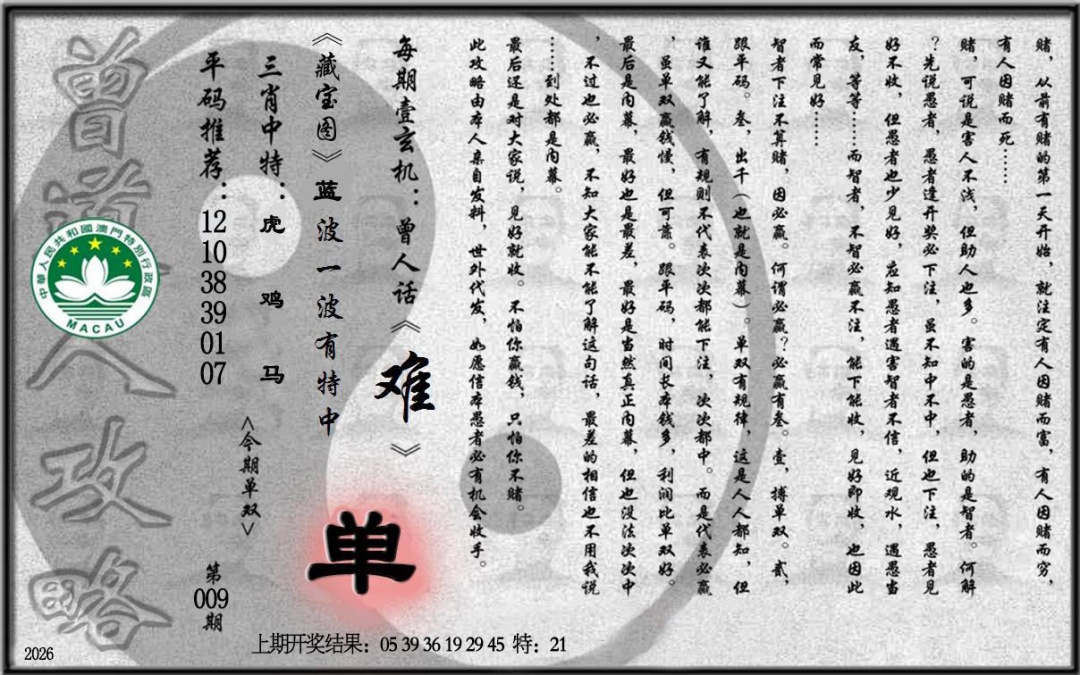 赌，从前有赌的第一天开始，就注定有人因赌而富，有人因赌而穷，
有人因赌而死……
赌，可说是害人不浅，但助人也多。害的是愚者，助的是智者。何解
？先说愚者，愚者逢开奖必下注，虽不知中不中，但也下注，愚者见
好不收，但愚者也少见好，应知愚者遇害智者不信，近观水，遇愚当
友，等等……而智者，不智必赢不注，能下能收，见好即收，也因此
而常见好……
智者下注不算赌，因必赢。何谓必赢？必赢有叁。壹，搏单双。贰，
跟平码。叁，出千（也就是内幕）。单双有规律，这是人人都知，但
谁又能了解，有规则不代表次次都能下注，次次都中。而是代表必赢
，虽单双赢钱慢，但可靠。跟平码，时间长本钱多，利润比单双好。
最后是内幕，最好也是最差，最好是当然真正内幕，但也没法次次中
，不过也必赢，不知大家能不能了解这句话，最差的相信也不用我说
……到处都是内幕。
最后还是对大家说，见好就收。不怕你赢钱，只怕你不赌。
此攻略由本人亲自发料，世外代发，如愿信本愚者必有机会收手。
每期壹玄机：曾人话《难》
《藏宝图》蓝波一波有特中
单
三肖中特：虎 鸡 马
<今期单双>
平码推荐：12 10 38 39 01 07
第009期
曾道人攻略
中華人民共和國澳門特別行政區
MACAU
上期开奖结果：05 39 36 19 29 45 特：21
2026